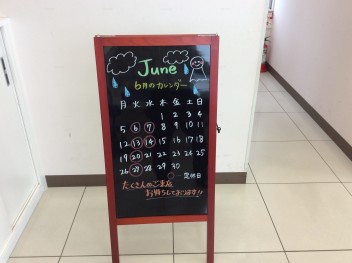 June
6月のカレンダー
月 火 水 木 金 土 日
1 2 3 4
5 6 7 8 9 10 11
12 13 14 15 16 17 18
19 20 21 22 23 24 25
26 27 28 29 30
○…定休日
たくさんのご来店
お待ちしております!!